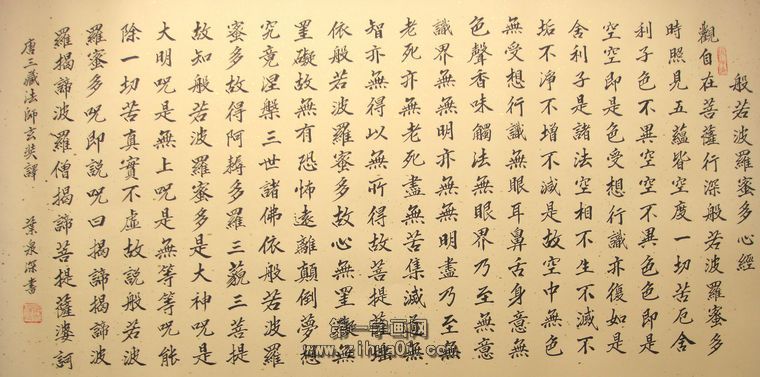 般若波羅蜜多心經
觀自在菩薩行深般若波羅蜜多
時照見五蘊皆空度一切苦厄舍
利子色不異空空不異色色即是
空空即是色受想行識亦復如是
舍利子是諸法空相不生不滅不
垢不淨不增不減是故空中無色
無受想行識無眼耳鼻舌身意無
色聲香味觸法無眼界乃至無意
識界無無明亦無無明盡乃至無
老死亦無老死盡無苦集滅道無
智亦無得以無所得故菩提薩埵
依般若波羅蜜多故心無罣礙無
罣礙故無有恐怖遠離顛倒夢想
究竟涅槃三世諸佛依般若波羅
蜜多故得阿耨多羅三藐三菩提
故知般若波羅蜜多是大神呪是
大明呪是無上呪是無等等呪能
除一切苦真實不虛故説般若波
羅蜜多呪即説呪曰揭諦揭諦波
羅揭諦波羅僧揭諦菩提薩婆訶
唐三藏法師玄奘譯 葉泉深書
www.zihua01.com